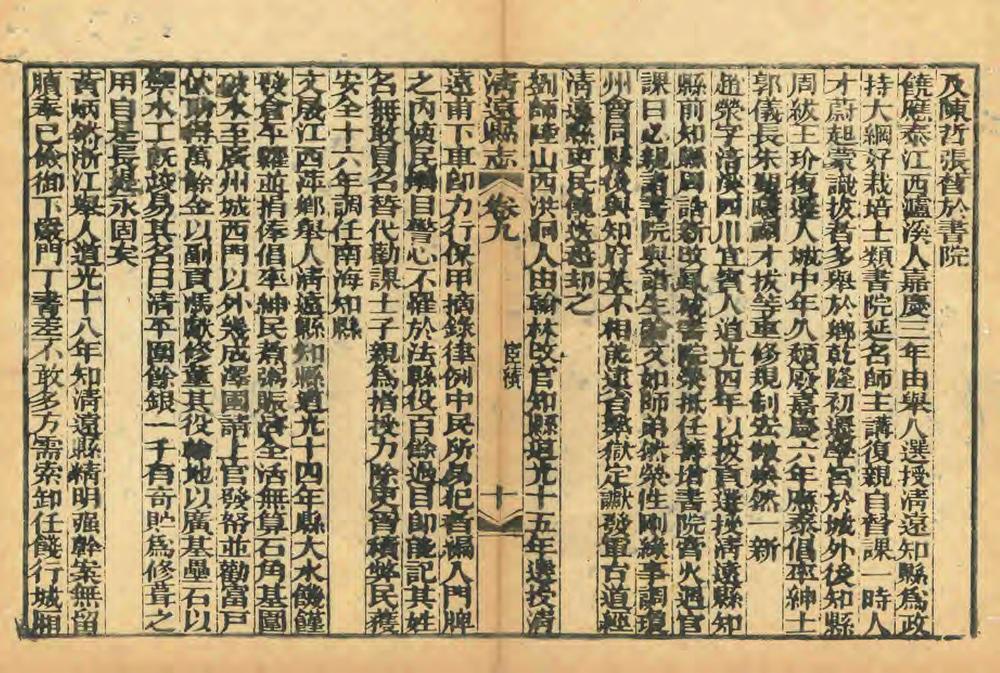 及陳哲張督於書院
饒應泰江西瀘溪人嘉慶三年由舉人選授清遠知縣為政
持大綱好栽培士類書院延名師主講復親自督課一時人
才蔚起蒙識拔者多舉於鄉乾隆初遷學宮於城外後知縣
周紱王玠復遷入城中年久頹廢嘉慶六年應泰倡率紳士
郭儀長朱才拔等重修規制宏敞煥然一新
趙榮字清溪四川宜賓人道光四年以拔貢選授清遠縣知
縣前知縣書院榮抵任籌增書院膏火週官
課日必親詣書院與諸生論文如師弟然榮性剛緣事調瓊
州會同縣後與知府某不相能逮省舉獄定讞發軍台道經
清遠縣吏民卻之
劉師陸山西洪洞人由翰林改官知縣道光十五年選授清
清遠縣志
卷九
宦積
十
遠甫下車即力行保甲摘錄律例中民所易犯者編入門牌
之內使民觸目警心不罹於法縣役百餘過目即能記其姓
名無敢冒名替代勸課士子親為指授力除吏胥積弊民獲
安全十六年調任南海知縣
文晟江西萍鄉舉人清遠縣知縣道光十四年縣大水饑饉
發倉午糶並捐俸倡率紳民賑濟全活無算石角基圍
破水至廣州城西門以外幾成澤國請上官發帑並勸富戶
伙助得萬餘金以副貢馮獻修董其役輪地以廣基壘石以
禦水工既竣易其名曰清平圍餘銀一千有奇貯為修葺之
用自是長堤永固矣
黃炳浙江舉人道光十八年知清遠縣精明强幹案無留
牘奉已儉御下嚴門丁書差不敢多方需索卸任餞行城廂